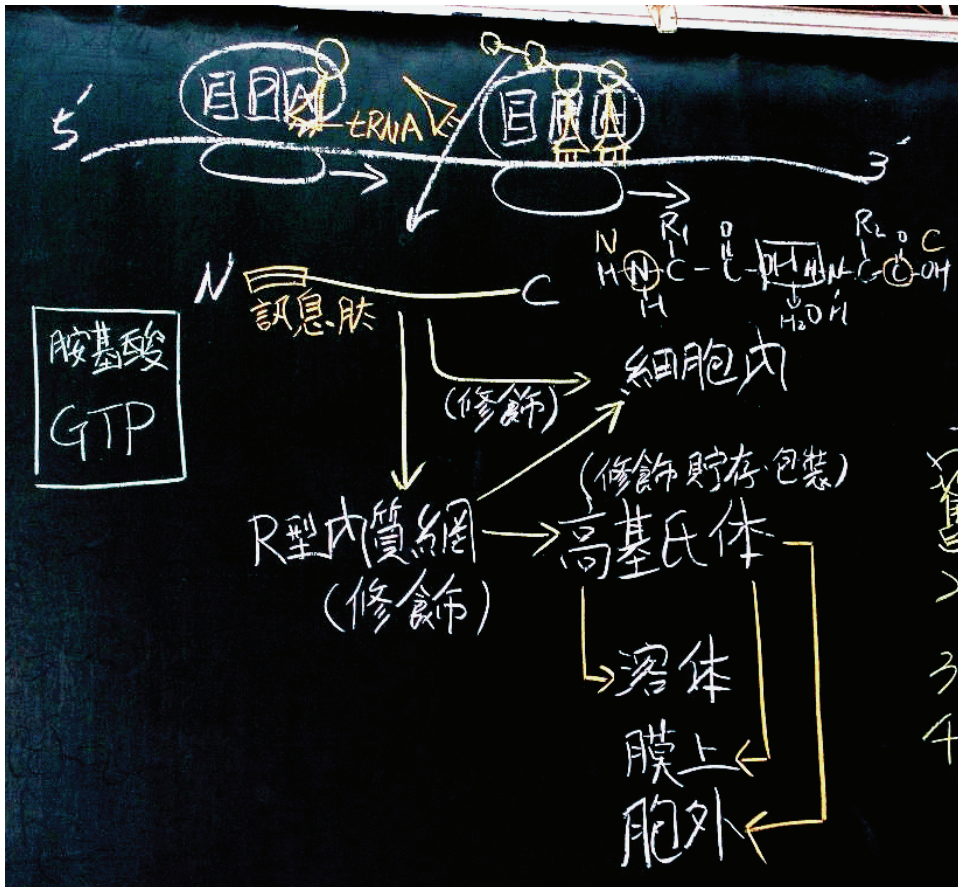 E P A
tRNA
E P A
5'
3'
N
訊息肽
C
N R₁ O R₂ O C
H N C - C - OH H - N - C - C - OH
H H₂O H
胺基酸
GTP
(修飾)
細胞內
(修飾貯存·包裝)
R型內質網
高基氏体
(修飾)
溶体
膜上
胞外
3
4